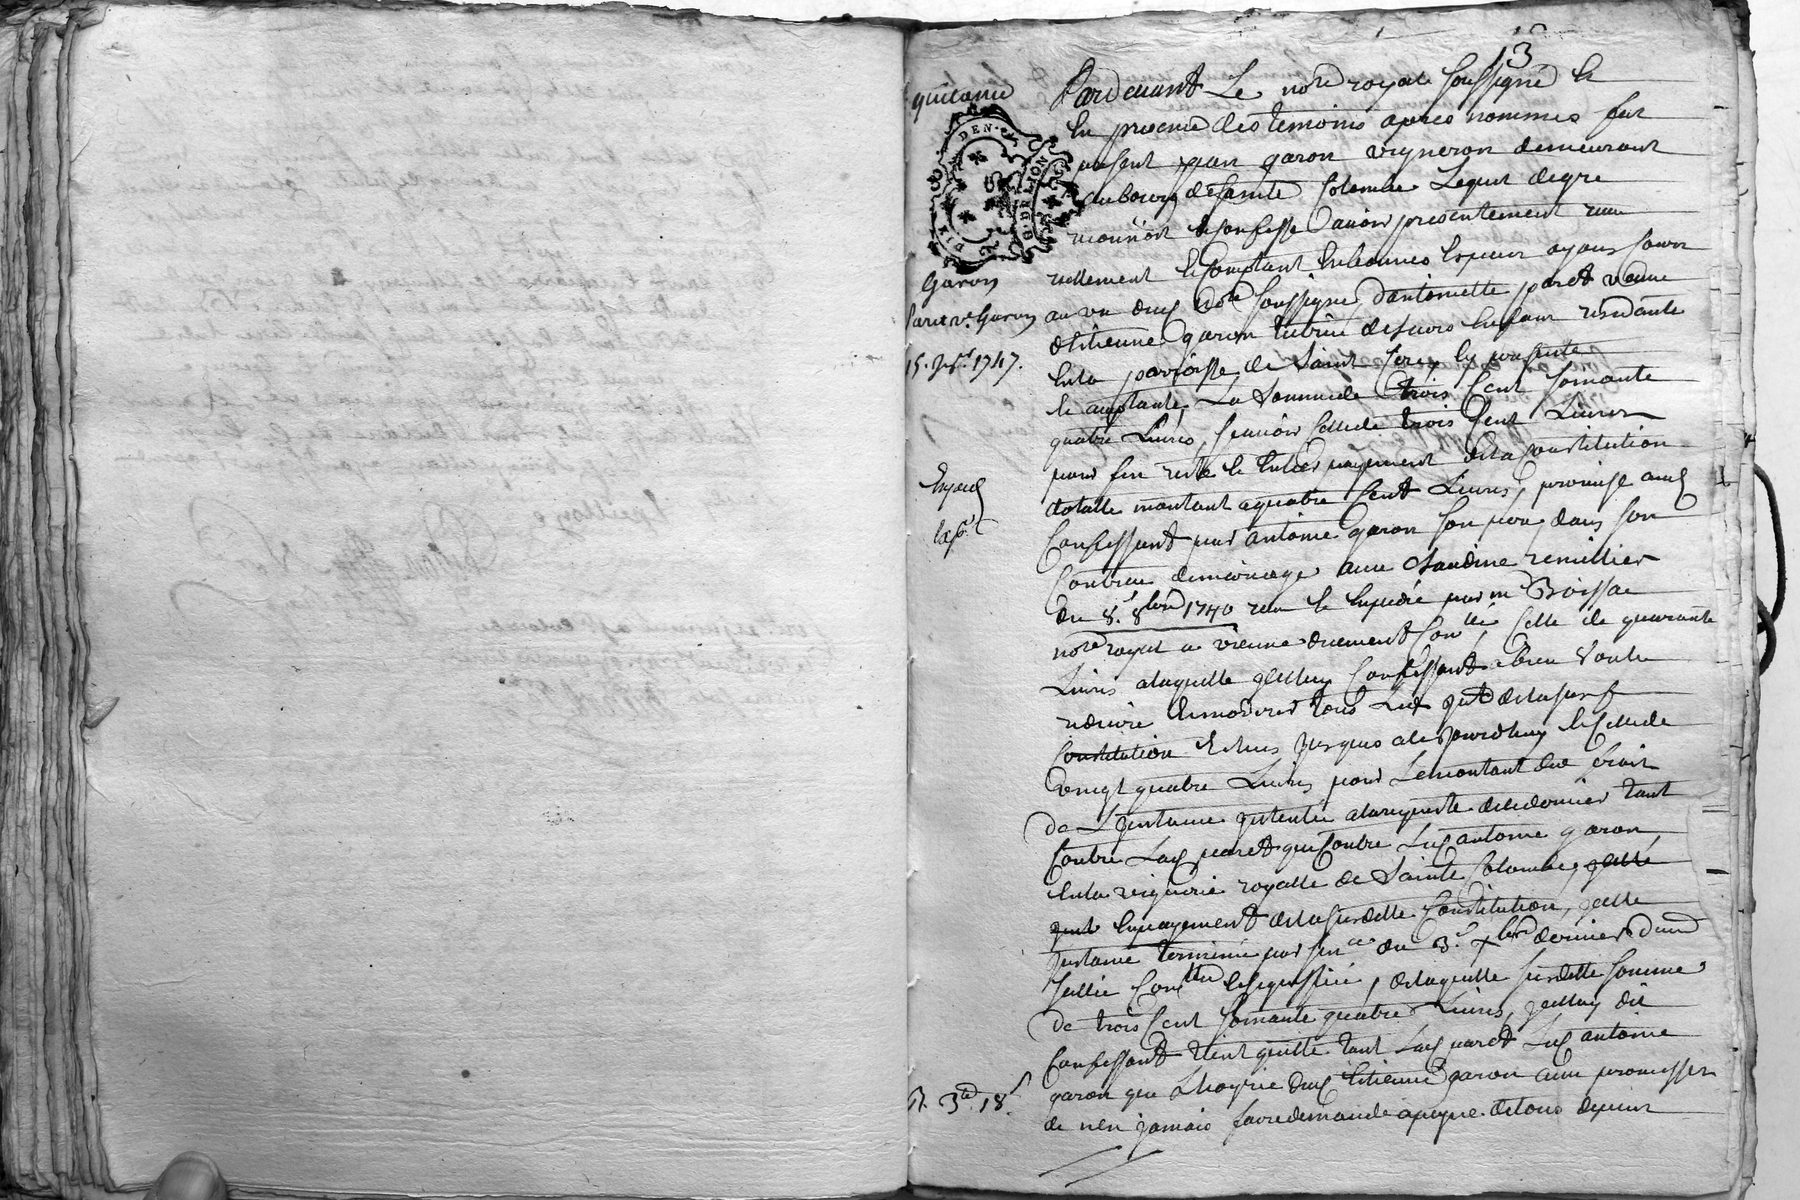 13
quittance
Pardevant Le no.re royal soussigné &
En presence des temoins apres nommés fut
present jean garon vigneron demeurant
au bourg de sainte Colombe Lequel de gre
reconnoit & confesse avoir presentement receu
reellement & comptant en bonnes Especes ayans cours
au vu dud no.re soussigné, d'antoinette paret veuve
d'Etienne garon tutrice de leurs Enfans residante
En la parroisse de Saint
& acceptante La Somme de trois Cent soixante
quatre Livres, sçavoir Celle de trois Cent Livres
pour fin reste & Entier payement de la Constitution
totalle montant a quatre Cent Livres, promise aud
Confessant par antoine garon son pere dans son
Contract de mariage avec Claudine remillier
du 8.e 8bre 1740 receu & Expedié par m.e Boissac
no.re royal a vienne duement Con.lé, Celle de quarante
Livres a laquelle ledit Confessant a bien voulu
reduire & moderer tous Les de la susd.
Constitution Echus jusques a ce jourdhuy & Celle de
vingt quatre Livres pour Le montant des frais
de L'jnstance jntentée a la requeste de ce dernier tant
Contre Lad paret que Contre Led antoine garon
En la viguerie royalle de Sainte Colombe,
En payement de la susditte Constitution, jcelle
jnstance terminée par sen.ce du 3.e Xbre dernier
Con.lée & signifiée, de laquelle susditte Somme
de trois Cent soixante quatre Livres, jceluy dit
Confessant tient quitte tant Lad paret Led antoine
garon que L'hoyrie dud Etienne garon avec promesse
de n'en jamais faire demande a peyne de tous depens
DEN
LION
Garon
Paret v.e Garon
15. 1747.
Exped
Exp.
3 18.